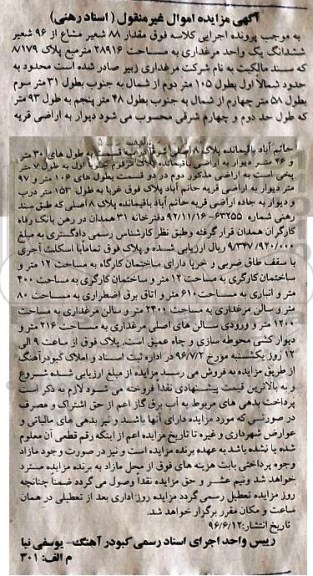 آگهی مزایده اموال غیرمنقول ( اسناد رهنی )
به موجب پرونده اجرایی کلاسه فوق مقدار ۸۸ شعیر مشاع از ۹۶ شعیر
ششدانگ یک واحد مرغداری به مساحت ۲۸۹۱۶ مترمربع پلاک ۸/۱۷۹
که سند مالکیت به نام شرکت مرغداری زبیر صادر شده است محدود به
حدود شمالاً اول بطول ۱۰۵ متر دوم از شمال به جنوب بطول ۳۱ متر سوم
بطول ۵۸ متر چهارم از شمال به جنوب بطول ۴۸ متر پنجم به طول ۹۳ متر
که طول حد دوم و چهارم شرقی محسوب می شود دیوار به اراضی قریه
حاتم آباد باقیمانده پلاک ۸ اصلی شرقاً درب قسمت به طول های ۳۰ متر
و ۲۶ متر دیوار به اراضی باقیمانده پلاک مرقوم اول به طول ۷ متر
پخی است به اراضی مذکور دوم در دو قسمت بطول های ۱۰۶ متر و ۹۷
متر دیوار به اراضی قریه حاتم آباد پلاک فوق غربا به طول ۱۵۳ متر درب
و دیوار به جاده اراضی قریه حاتم آباد باقیمانده پلاک ۸ اصلی که طبق سند
رهنی شماره ۶۳۲۵۵-۹۲/۱۱/۱۶ دفترخانه ۳۱ همدان در رهن بانک رفاه
کارگران همدان قرار گرفته وطبق نظر کارشناس رسمی دادگستری به مبلغ
۹/۳۴۷/۹۲۰/۰۰۰ ریال ارزیابی شده و پلاک فوق تماماً با اسکلت آجری
با سقف طاق ضربی و خرپا دارای ساختمان کارگاه به مساحت ۱۲ متر و
ساختمان کارگری به مساحت ۱۲ متر و ساختمان کارگری به مساحت ۴۰۰
متر و انباری به مساحت ۶۱۰ متر و اتاق برق اضطراری به مساحت ۸۰
متر و سالن مرغداری به مساحت ۲۴۰۰ متر و سالن مرغداری به مساحت
۱۲۰۰ متر و ورودی سالن های اصلی مرغداری به مساحت ۲۱۶ متر و
دیوار کشی محوطه سازی و چاه عمیق است. پلاک فوق از ساعت ۹ الی
۱۲ روز یکشنبه مورخ ۹۶/۷/۲ در اداره ثبت اسناد و املاک کبودرآهنگ
از طریق مزایده به فروش می رسد مزایده از مبلغ ارزیابی شده شروع
و به بالاترین قیمت پیشنهادی نقدا فروخته می شود لازم به ذکر است
پرداخت بدهی های مربوط به آب برق گاز اعم از حق اشتراک و مصرف
در صورتی که مورد مزایده دارای آنها باشند و نیز بدهی های مالیاتی و
عوارض شهرداری و غیره تا تاریخ مزایده اعم از اینکه رقم قطعی آن معلوم
شده یا نشده باشد به عهده برنده مزایده است و نیز در صورت وجود مازاد
وجوه پرداختی بابت هزینه های فوق از محل مازاد به برنده مزایده مسترد
خواهد شد ونیم عشر و حق مزایده نقدا وصول می گردد ضمنا چنانچه
روز مزایده تعطیل رسمی گردد مزایده روز اداری بعد از تعطیلی در همان
ساعت و مکان مقرر برگزار خواهد شد.
تاریخ انتشار: ۹۶/۶/۱۲
رییس واحد اجرای اسناد رسمی کبودرآهنگ- یوسفی نیا
م الف: ۳۰۱